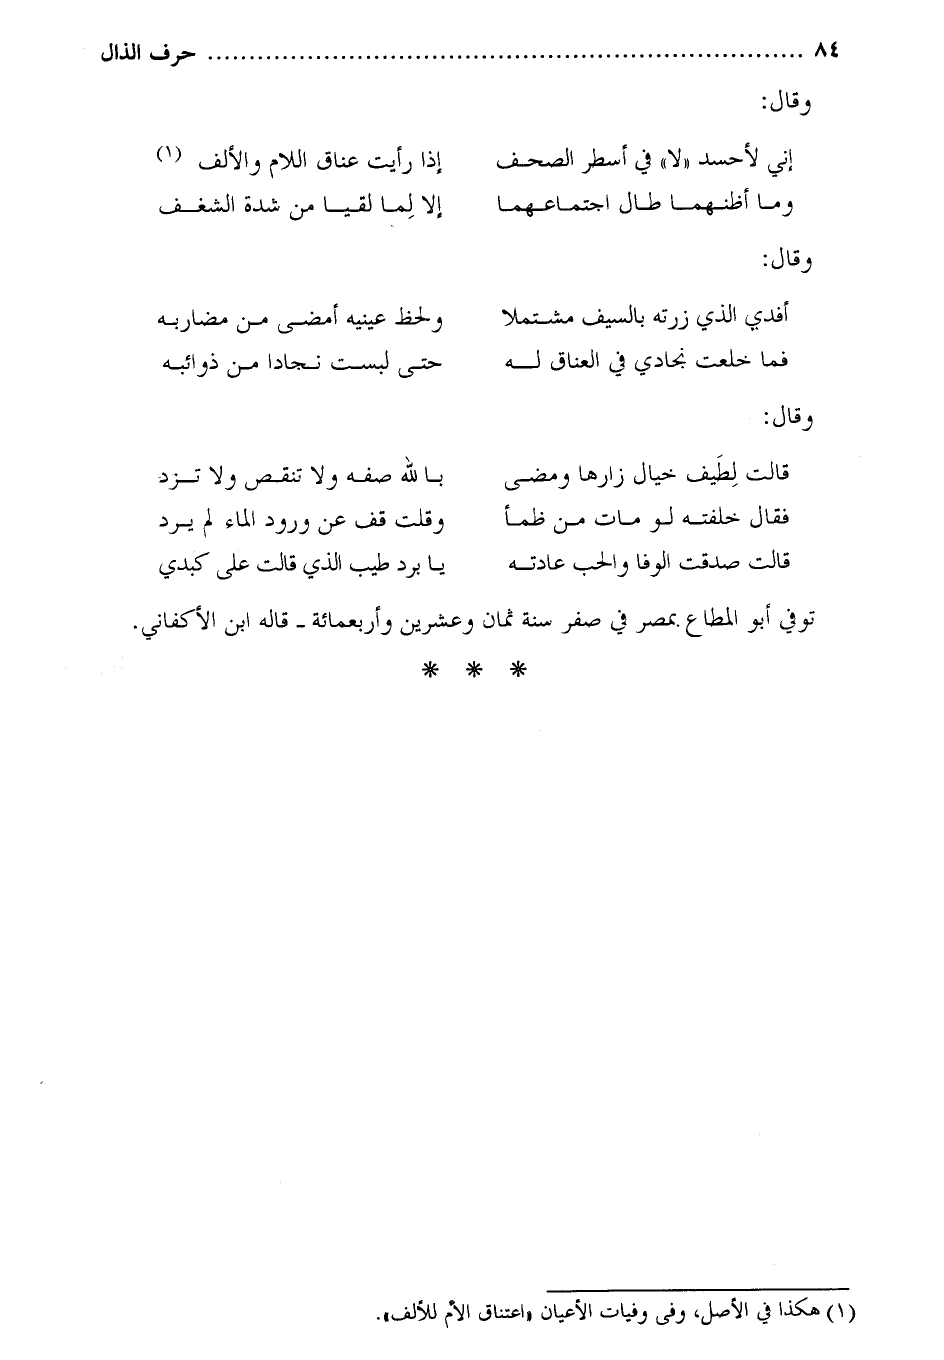 ٨٤ ........................................................................ حرف الذال
وقال:
إني لأحسد «لا» في أسطر الصحف إذا رأيت عناق اللام والألف (١)
وما أظنهما طال اجتماعهما إلا لِما لقيا من شدة الشغف
وقال:
أفدي الذي زرته بالسيف مشتملا ولحظ عينيه أمضى من مضاربه
فما خلعت نجادي في العناق له حتى لبست نجادا من ذوائبه
وقال:
قالت لِطَيف خيال زارها ومضى بالله صفه ولا تنقص ولا تزد
فقال خلفته لو مات من ظمأ وقلت قف عن ورود الماء لم يرد
قالت صدقت الوفا والحب عادته يا برد طيب الذي قالت على كبدي
توفي أبو المطاع بمصر في صفر سنة ثمان وعشرين وأربعمائة ـ قاله ابن الأكفاني.
* * *
(١) هكذا في الأصل، وفى وفيات الأعيان «اعتناق الأم للألف».